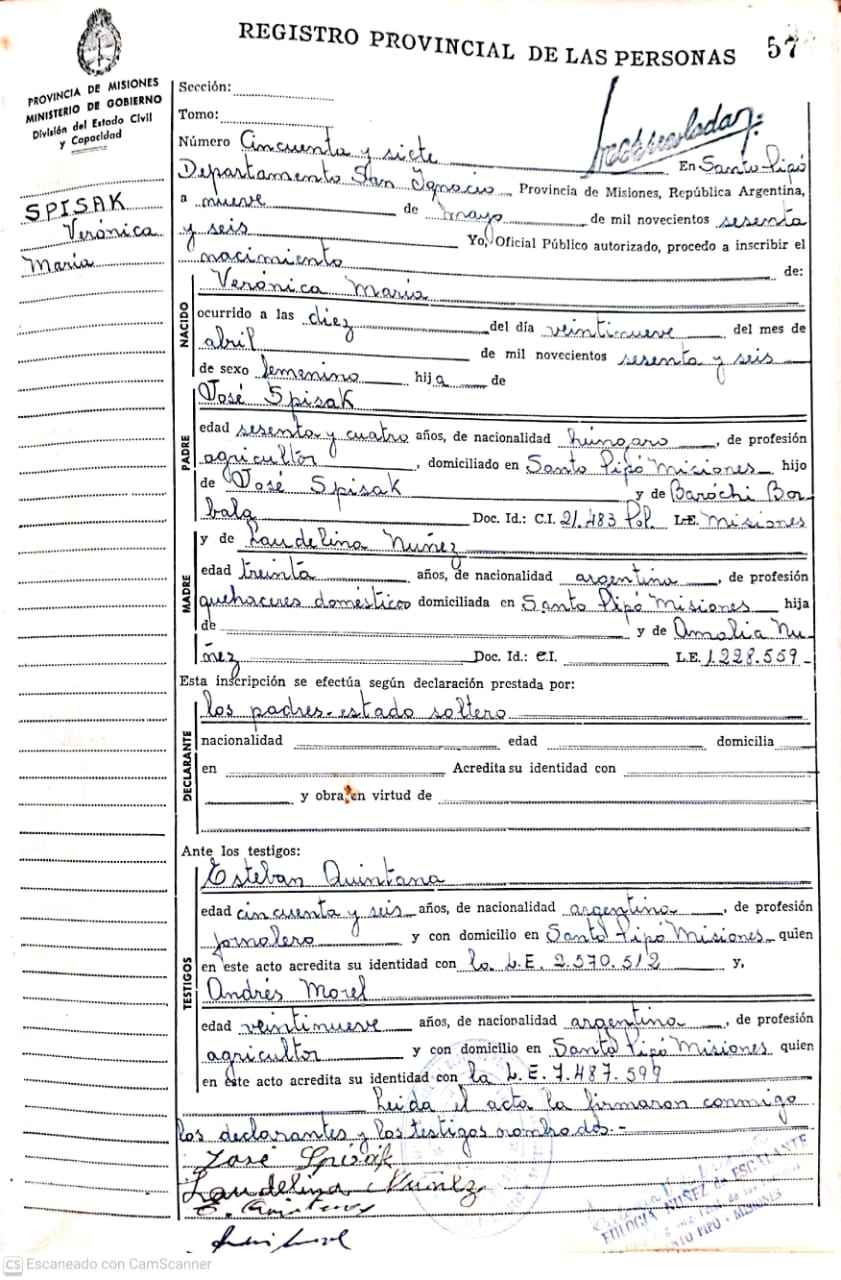 REGISTRO PROVINCIAL DE LAS PERSONAS 57
PROVINCIA DE MISIONES
MINISTERIO DE GOBIERNO
División del Estado Civil
y Capacidad
SPISAK
Verónica
María
Sección:
Tomo:
Número Cincuenta y siete En Santo Pipó
Departamento San Ignacio Provincia de Misiones, República Argentina,
a nueve de mayo de mil novecientos sesenta
y seis Yo, Oficial Público autorizado, procedo a inscribir el
nacimiento de:
NACIDO
Verónica María
ocurrido a las diez del día veintinueve del mes de
abril de mil novecientos sesenta y seis
de sexo femenino hija de
PADRE
José Spisak
edad sesenta y cuatro años, de nacionalidad húngaro, de profesión
agricultor, domiciliado en Santo Pipó Misiones hijo
de José Spisak y de Baróchi Bor-
bala Doc. Id.: C.I. 21.483 Pol. L.E. Misiones
MADRE
y de Laudelina Nuñez
edad treinta años, de nacionalidad argentina, de profesión
quehaceres domésticos domiciliada en Santo Pipó Misiones hija
de y de Amalia Nu-
ñez Doc. Id.: C.I. L.E. 1.228.559-
Esta inscripción se efectúa según declaración prestada por:
DECLARANTE
los padres-estado soltero
nacionalidad edad domicilia
en Acredita su identidad con
y obra en virtud de
Ante los testigos:
TESTIGOS
Esteban Quintana
edad cincuenta y seis años, de nacionalidad argentina, de profesión
jornalero y con domicilio en Santo Pipó Misiones quien
en este acto acredita su identidad con la L.E. 2.570.512 y,
Andrés Morel
edad veintinueve años, de nacionalidad argentina, de profesión
agricultor y con domicilio en Santo Pipó Misiones quien
en este acto acredita su identidad con la L.E. 7.487.599
Leida el acta la firmaron conmigo
los declarantes y los testigos nombrados.-
José Spisak
Laudelina Nuñez
EULOGIA NUÑEZ de ESCALANTE
SANTO PIPO - MISIONES
CS Escaneado con CamScanner